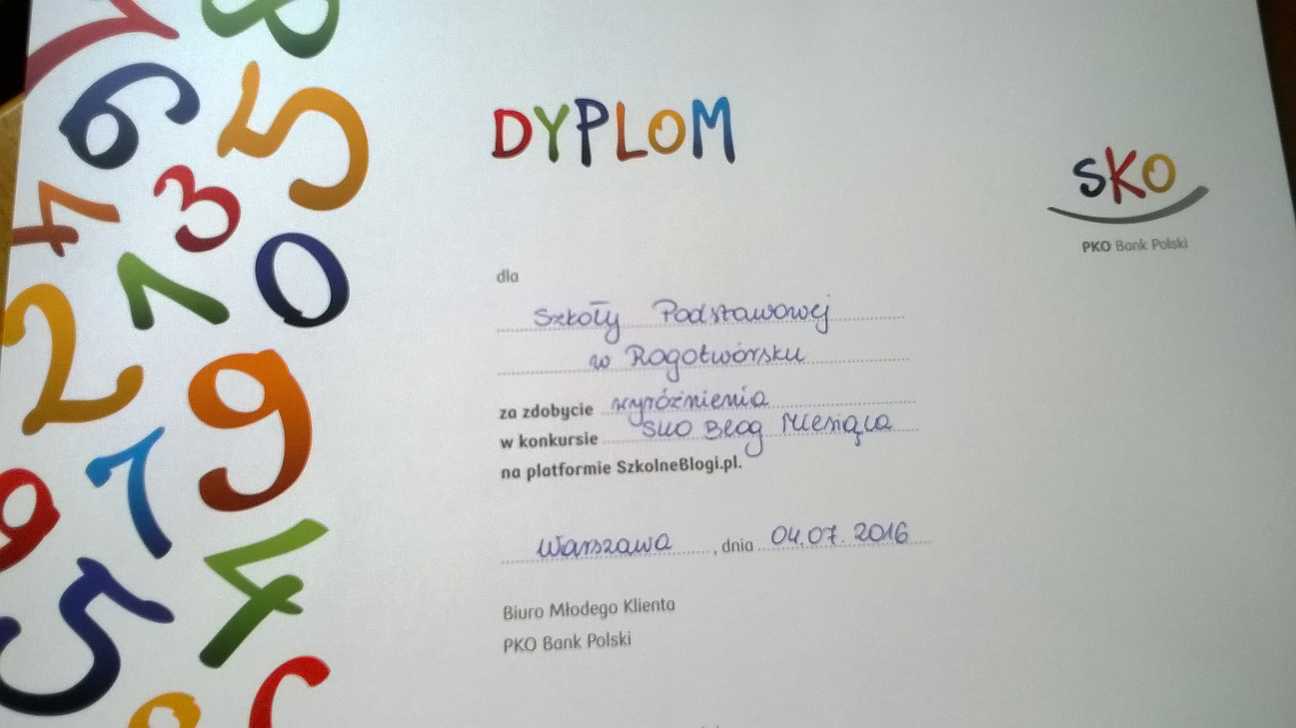 DYPLOM
SKO
PKO Bank Polski
dla
Szkoły Podstawowej
w Rogotwórsku
za zdobycie wyróżnienia
w konkursie SKO Blog Miesiąca
na platformie SzkolneBlogi.pl.
Warszawa, dnia 04.07.2016
Biuro Młodego Klienta
PKO Bank Polski
8
6
5
4
3
1
0
2
9
7
9
5
4